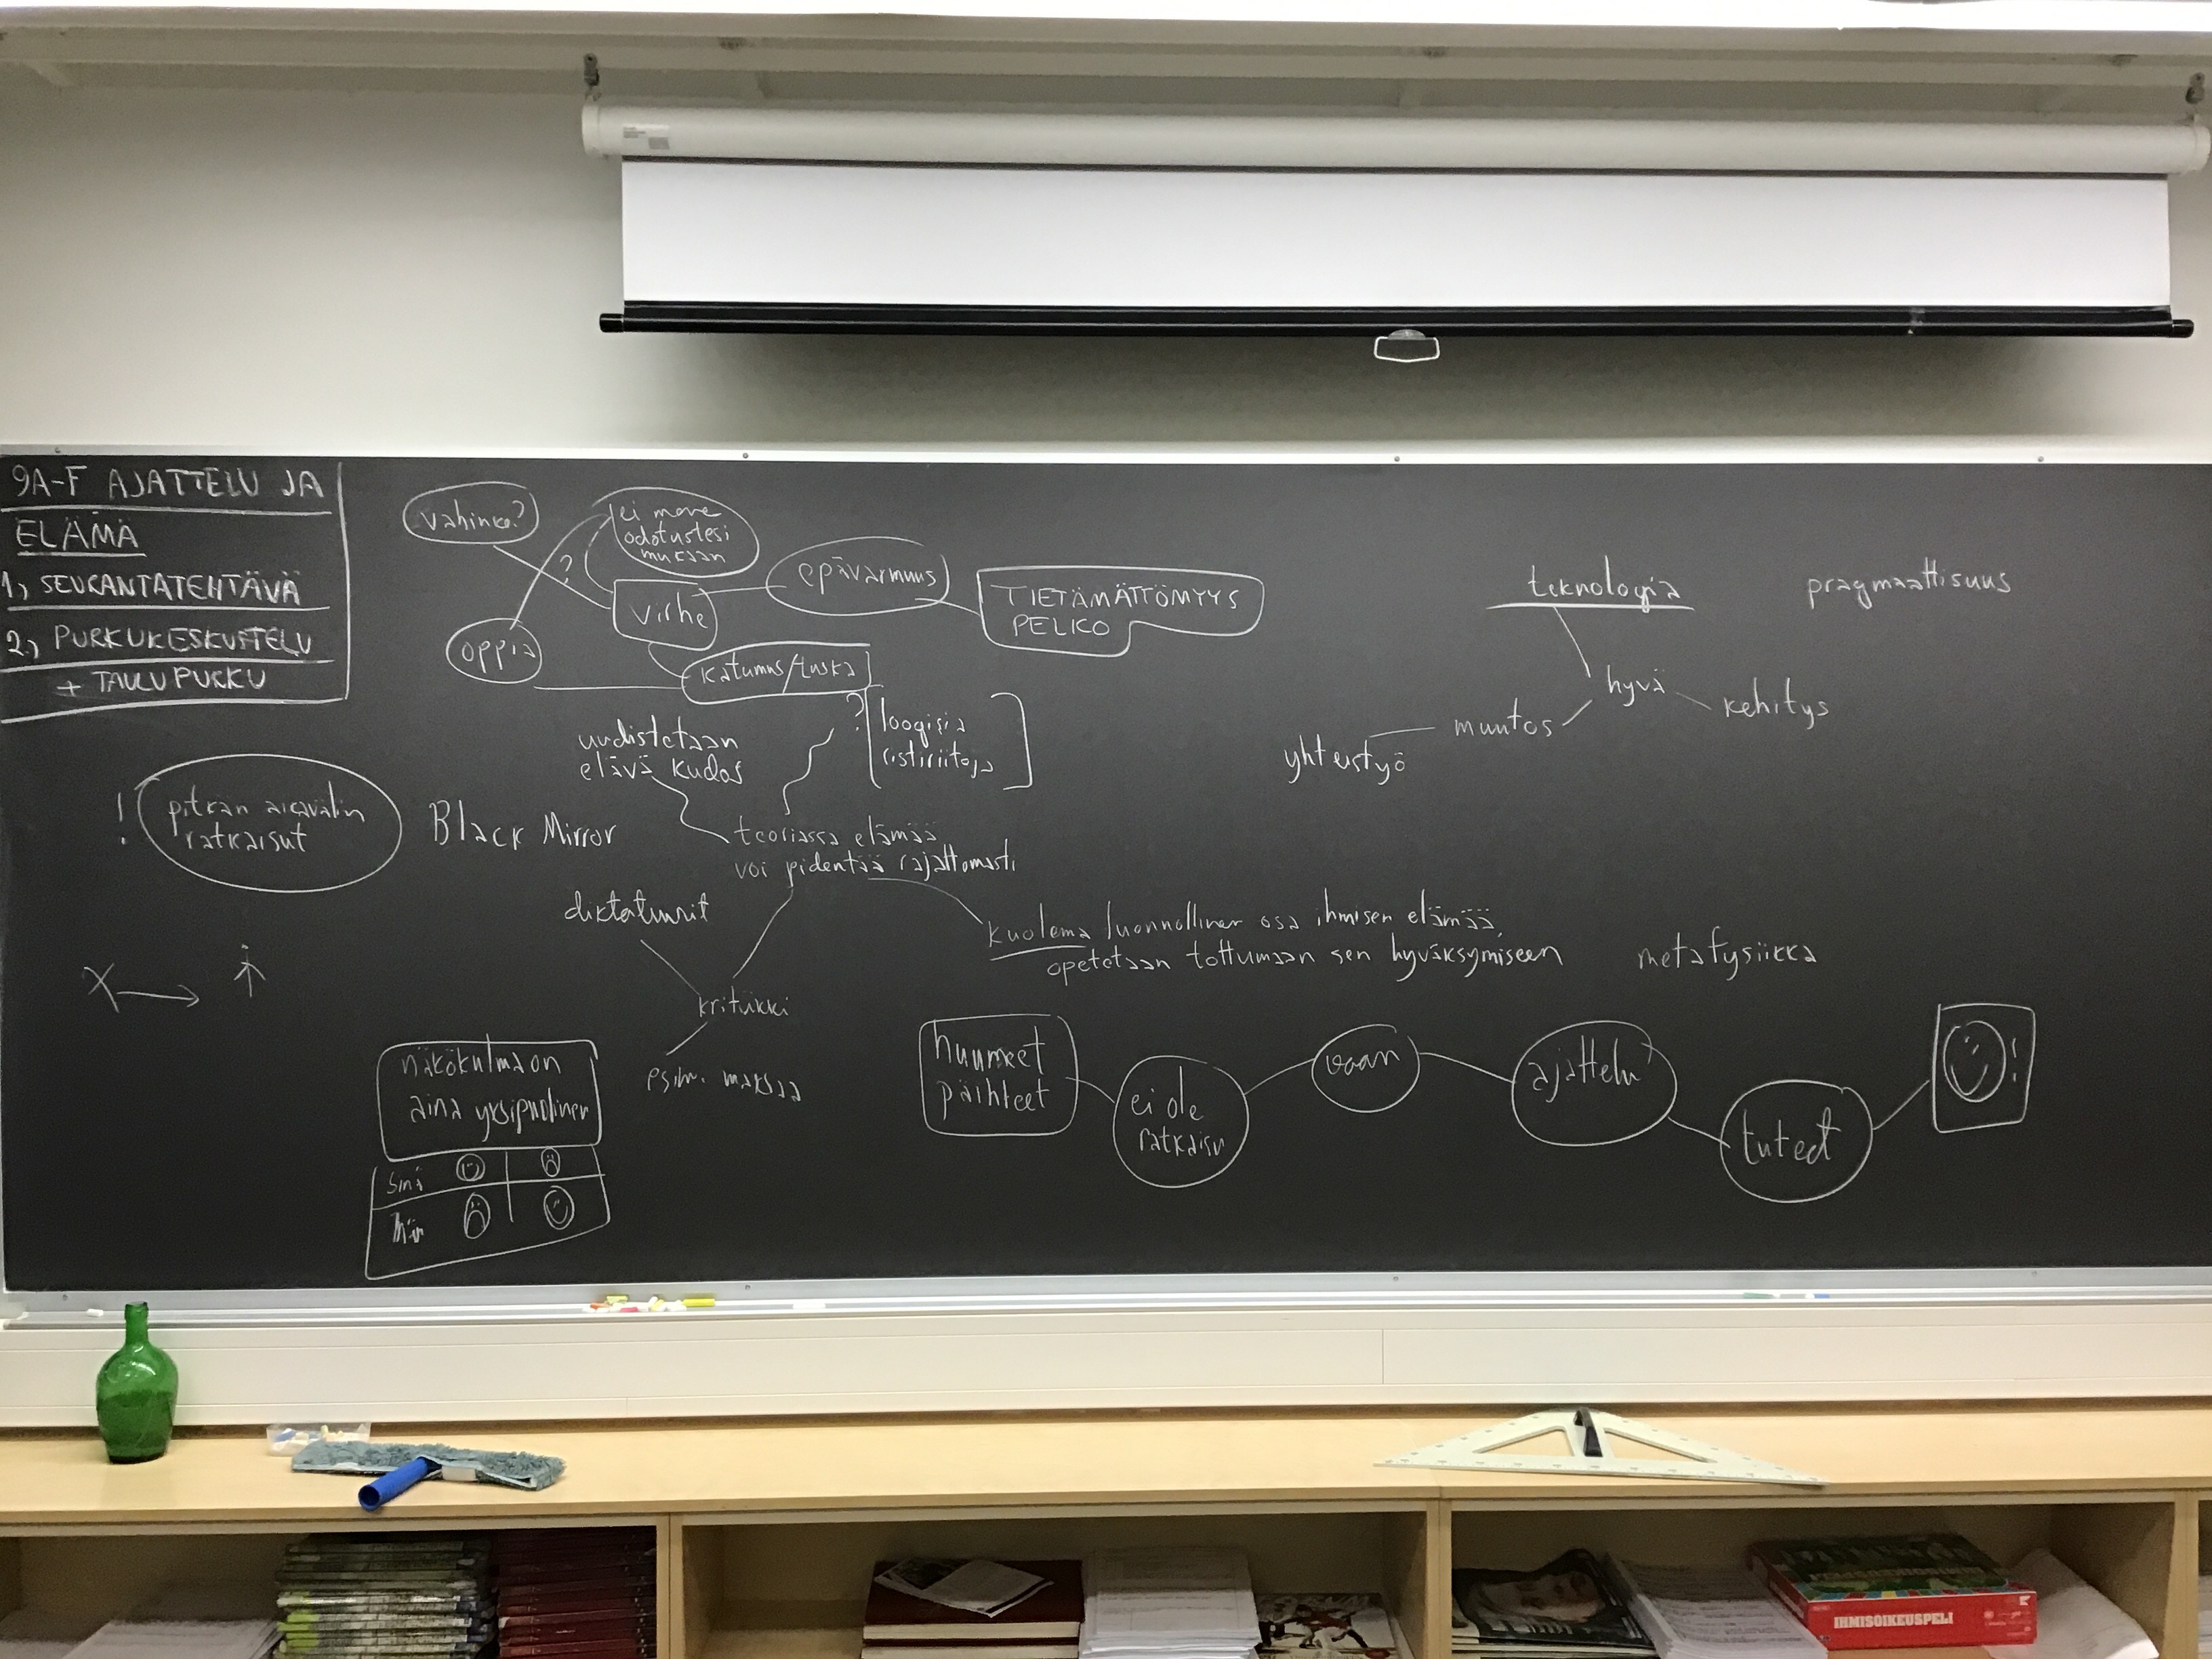 9A-F AJATTELU JA
ELÄMÄ
1) SEURANTATEHTÄVÄ
2.) PURKUKESKUSTELU
+ TAULUPURKU
vahinko?
ei mene
odotustesi
mukaan
?
virhe
epävarmuus
TIETÄMÄTTÖMYYS
PELKO
oppia
katumus/tuska
?
loogisia
ristiriitoja
uudistetaan
elävä kudos
teknologia
pragmaattisuus
hyvä
kehitys
muutos
yhteistyö
!
pitkän aikavälin
ratkaisut
Black Mirror
teoriassa elämää
voi pidentää rajattomasti
diktatuurit
kuolema luonnollinen osa ihmisen elämää,
opetetaan tottumaan sen hyväksymiseen
metafysiikka
X
kritiikki
esim. maksaa
näkökulma on
aina yksipuolinen
Sinä
Min
huumeet
päihteet
ei ole
ratkaisu
vaan
ajattelu
tuteet
!
IHMISOIKEUSPELI